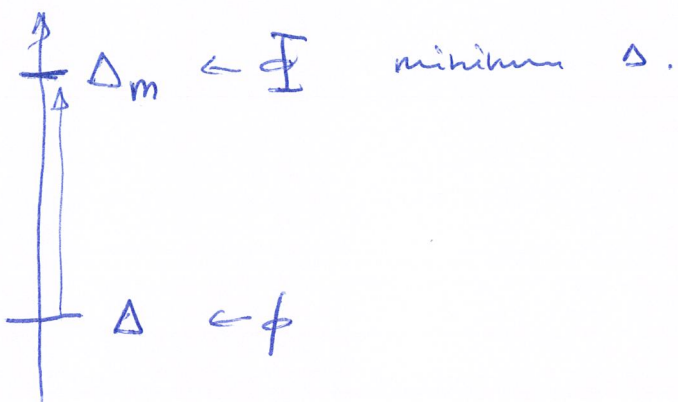 Δm ← Φ minimum Δ.
Δ ← ϕ